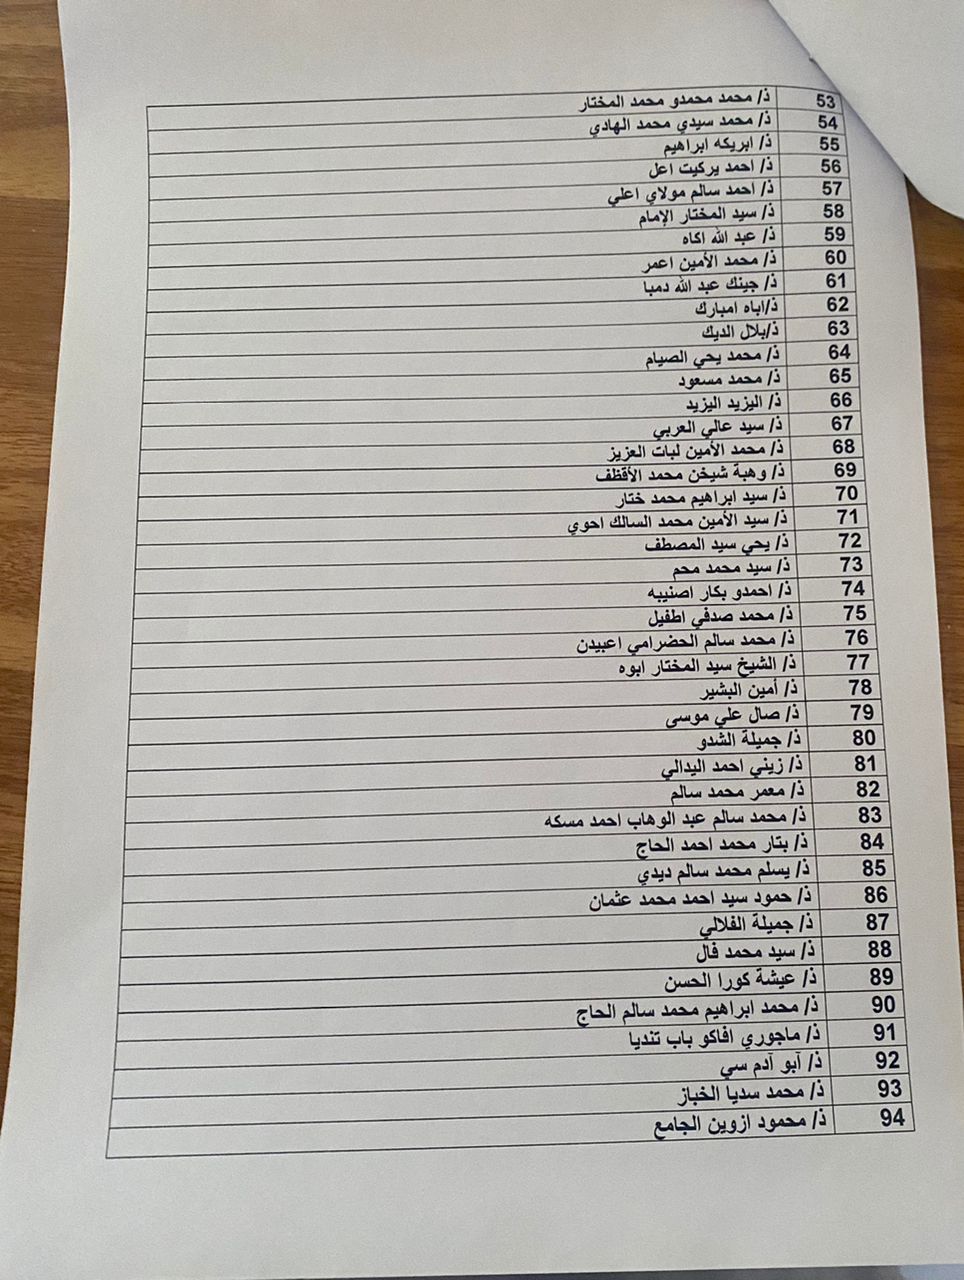 53 ذ/ محمد محمدو محمد المختار
54 ذ/ محمد سيدي محمد الهادي
55 ذ/ ابريكه ابراهيم
56 ذ/ احمد يركيت اعل
57 ذ/ احمد سالم مولاي اعلي
58 ذ/ سيد المختار الإمام
59 ذ/ عبد الله اكاه
60 ذ/ محمد الأمين اعمر
61 ذ/ جينك عبد الله دمبا
62 ذ/اباه امبارك
63 ذ/بلال الديك
64 ذ/ محمد يحي الصيام
65 ذ/ محمد مسعود
66 ذ/ اليزيد اليزيد
67 ذ/ سيد عالي العربي
68 ذ/ محمد الأمين لبات العزيز
69 ذ/ وهبة شيخن محمد الأقظف
70 ذ/ سيد ابراهيم محمد ختار
71 ذ/ سيد الأمين محمد السالك احوي
72 ذ/ يحي سيد المصطف
73 ذ/ سيد محمد محم
74 ذ/ احمدو بكار اصنيبه
75 ذ/ محمد صدفي اطفيل
76 ذ/ محمد سالم الحضرامي اعبيدن
77 ذ/ الشيخ سيد المختار ابوه
78 ذ/ أمين البشير
79 ذ/ صال علي موسى
80 ذ/ جميلة الشدو
81 ذ/ زيني احمد اليدالي
82 ذ/ معمر محمد سالم
83 ذ/ محمد سالم عبد الوهاب احمد مسكه
84 ذ/ بتار محمد احمد الحاج
85 ذ/ يسلم محمد سالم ديدي
86 ذ/ حمود سيد احمد محمد عثمان
87 ذ/ جميلة الفلالي
88 ذ/ سيد محمد فال
89 ذ/ عيشة كورا الحسن
90 ذ/ محمد ابراهيم محمد سالم الحاج
91 ذ/ ماجوري افاكو باب تنديا
92 ذ/ آبو آدم سي
93 ذ/ محمد سديا الخباز
94 ذ/ محمود ازوين الجامع